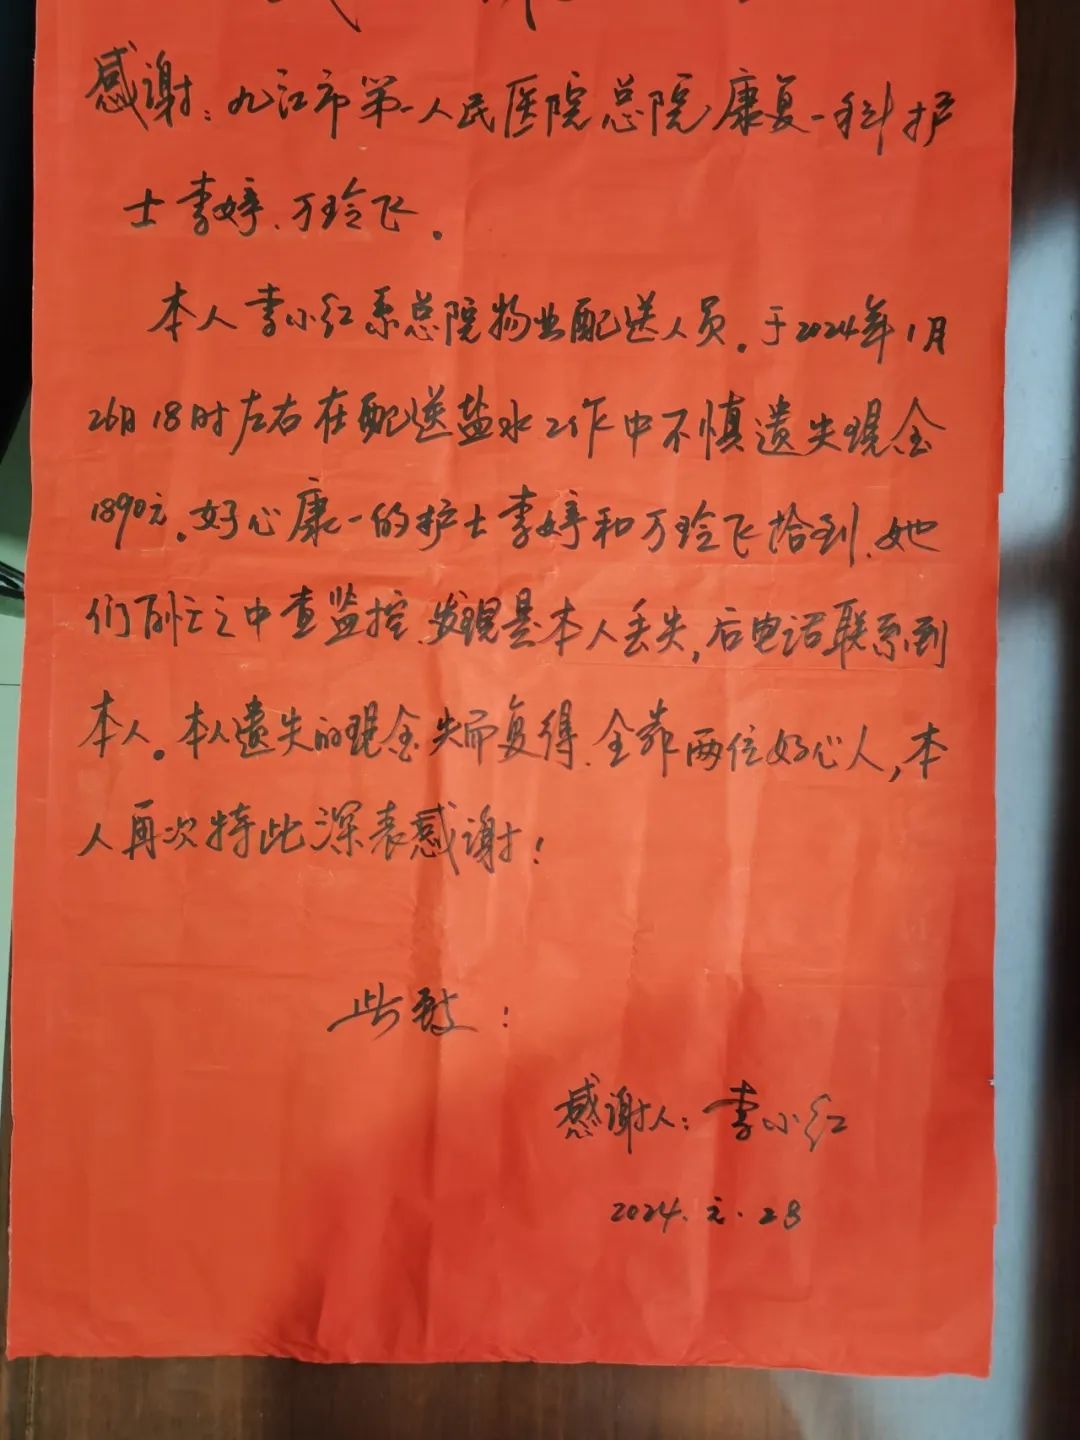 感谢：九江市第一人民医院总院康复一科护
士李婷、万玲飞。
本人李小红系总院物业配送人员。于2024年1月
26日18时左右在配送盐水工作中不慎遗失现金
1890元。好心康一的护士李婷和万玲飞拾到、她
们百忙之中查监控、发现是本人丢失，后电话联系到
本人。本人遗失的现金失而复得、全靠两位好心人，本
人再次特此深表感谢！
此致！
感谢人：李小红
2024.元.28